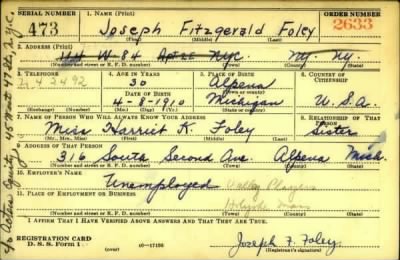 SERIAL NUMBER 1. NAME (Print) ORDER NUMBER
473 Joseph Fitzgerald Foley 2633
(First) (Middle) (Last)
2. ADDRESS (Print)
W-84 Apt 2E NYC. NY. NY.
(Number and street or R. F. D. number) (Town) (County) (State)
3. TELEPHONE 4. AGE IN YEARS 5. PLACE OF BIRTH 6. COUNTRY OF CITIZENSHIP
4 2492 30 Alpena
DATE OF BIRTH (Town or county)
4-8-1910 Michigan U.S.A.
(Exchange) (Number) (Mo.) (Day) (Yr.) (State or country)
7. NAME OF PERSON WHO WILL ALWAYS KNOW YOUR ADDRESS 8. RELATIONSHIP OF THAT PERSON
Miss Harriet K. Foley Sister
(Mr., Mrs., Miss) (First) (Middle) (Last)
9. ADDRESS OF THAT PERSON
316 South Second Ave. Alpena Mich.
(Number and street or R. F. D. number) (Town) (County) (State)
10. EMPLOYER'S NAME
Unemployed Valley Players
11. PLACE OF EMPLOYMENT OR BUSINESS
Holyoke Mass
(Number and street or R. F. D. number) (Town) (County) (State)
I AFFIRM THAT I HAVE VERIFIED ABOVE ANSWERS AND THAT THEY ARE TRUE.
REGISTRATION CARD
D. S. S. Form 1 16-17105 Joseph F. Foley
(Registrant's signature)
c/o Actors Equity, 45 West 47 St., N.Y.C.